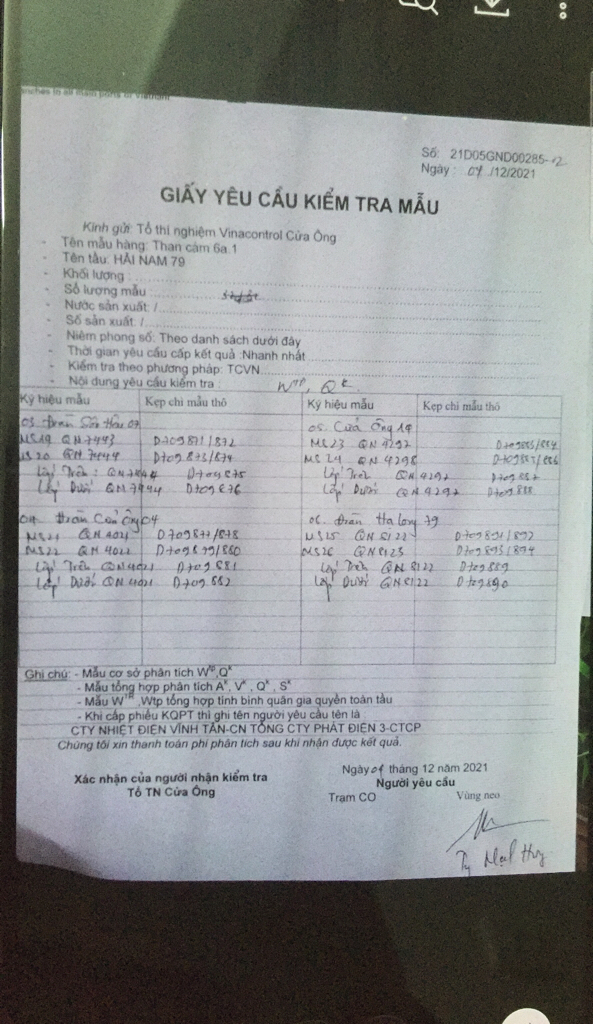 Số: 21D05GND00285-02
Ngày : 04 /12/2021
GIẤY YÊU CẦU KIỂM TRA MẪU
Kính gửi: Tổ thí nghiệm Vinacontrol Cửa Ông
- Tên mẫu hàng: Than cám 6a.1
- Tên tàu: HẢI NAM 79
- Khối lượng :
- Số lượng mẫu :
- Nước sản xuất: /
- Số sản xuất: /
- Niêm phong số: Theo danh sách dưới đây
- Thời gian yêu cầu cấp kết quả :Nhanh nhất
- Kiểm tra theo phương pháp: TCVN
- Nội dung yêu cầu kiểm tra : Wtp, Qk
Ký hiệu mẫu Kẹp chì mẫu thô Ký hiệu mẫu Kẹp chì mẫu thô
03. 05. Cửa Ông 19
MS19 QN 7443 D709871/872 MS23 QN 4297 D709883/884
MS20 QN 7444 D709873/874 MS24 QN 4298 D709885/886
Lớp Trên: D709875 Lớp Trên QN 4297 D709887
Lớp Dưới QN 7444 D709876 Lớp Dưới QN 4297 D709888
04. Cửa Ông 04 06. Hạ Long 79
MS21 QN 4021 D709877/878 MS25 QN 8122 D709891/892
MS22 QN 4022 D709879/880 MS26 QN 8123 D709893/894
Lớp Trên QN 4021 D709881 Lớp Trên QN 8122 D709889
Lớp Dưới QN 4021 D709882 Lớp Dưới QN 8122 D709890
Ghi chú: - Mẫu cơ sở phân tích Wtp,Qk
- Mẫu tổng hợp phân tích Ak, Vk, Qk, Sk
- Mẫu Wtp ,Wtp tổng hợp tính bình quân gia quyền toàn tàu
- Khi cấp phiếu KQPT thì ghi tên người yêu cầu tên là
CTY NHIỆT ĐIỆN VĨNH TÂN-CN TỔNG CTY PHÁT ĐIỆN 3-CTCP
Chúng tôi xin thanh toán phí phân tích sau khi nhận được kết quả.
Ngày 04 tháng 12 năm 2021
Xác nhận của người nhận kiểm tra Người yêu cầu
Tổ TN Cửa Ông Trạm CO Vùng neo